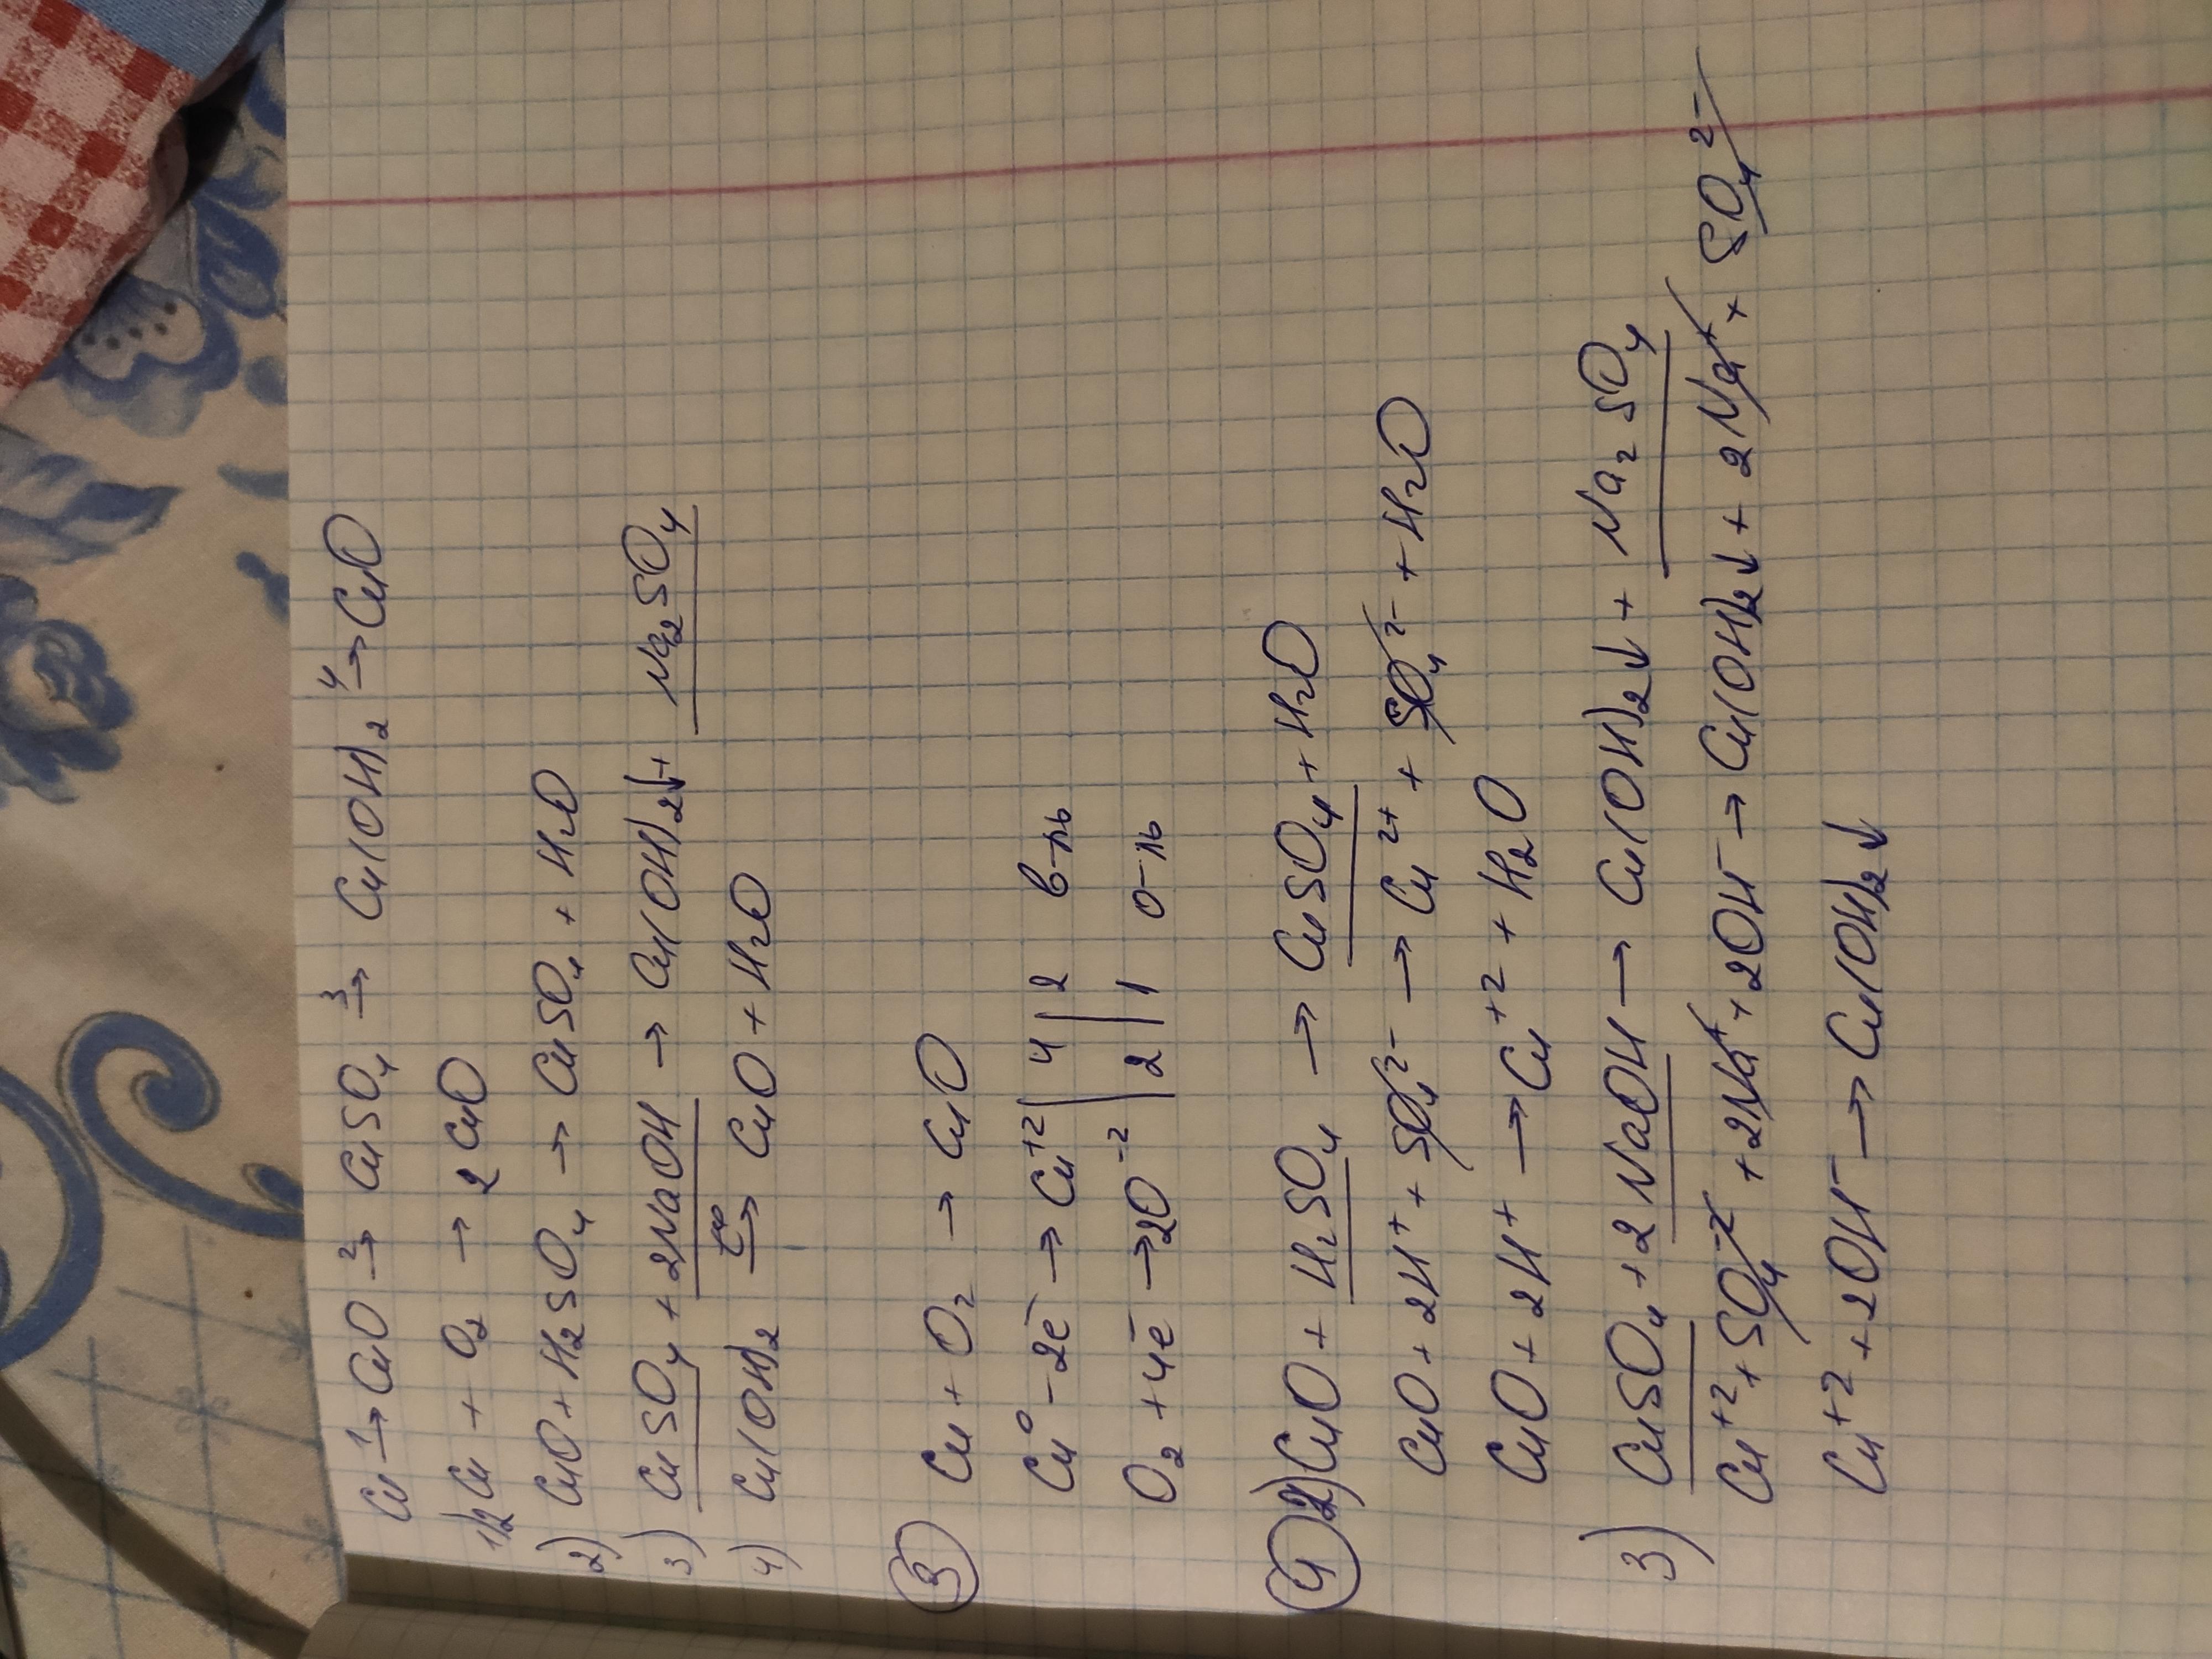 Cu →¹ CuO →² CuSO₄ →³ Cu(OH)₂ →⁴ CuO
1) 2Cu + O₂ → 2CuO
2) CuO + H₂SO₄ → CuSO₄ + H₂O
3) CuSO₄ + 2NaOH → Cu(OH)₂↓ + Na₂SO₄
4) Cu(OH)₂ →t° CuO + H₂O
③ Cu + O₂ → CuO
Cu⁰ - 2ē → Cu⁺² | 4 | 2 в-ль
O₂ + 4ē → 2O⁻² | 2 | 1 о-ль
④ 2) CuO + H₂SO₄ → CuSO₄ + H₂O
CuO + 2H⁺ + SO₄²⁻ → Cu²⁺ + SO₄²⁻ + H₂O
CuO + 2H⁺ → Cu⁺² + H₂O
3) CuSO₄ + 2NaOH → Cu(OH)₂↓ + Na₂SO₄
Cu⁺² + SO₄⁻² + 2Na⁺ + 2OH⁻ → Cu(OH)₂↓ + 2Na⁺ + SO₄²⁻
Cu⁺² + 2OH⁻ → Cu(OH)₂↓